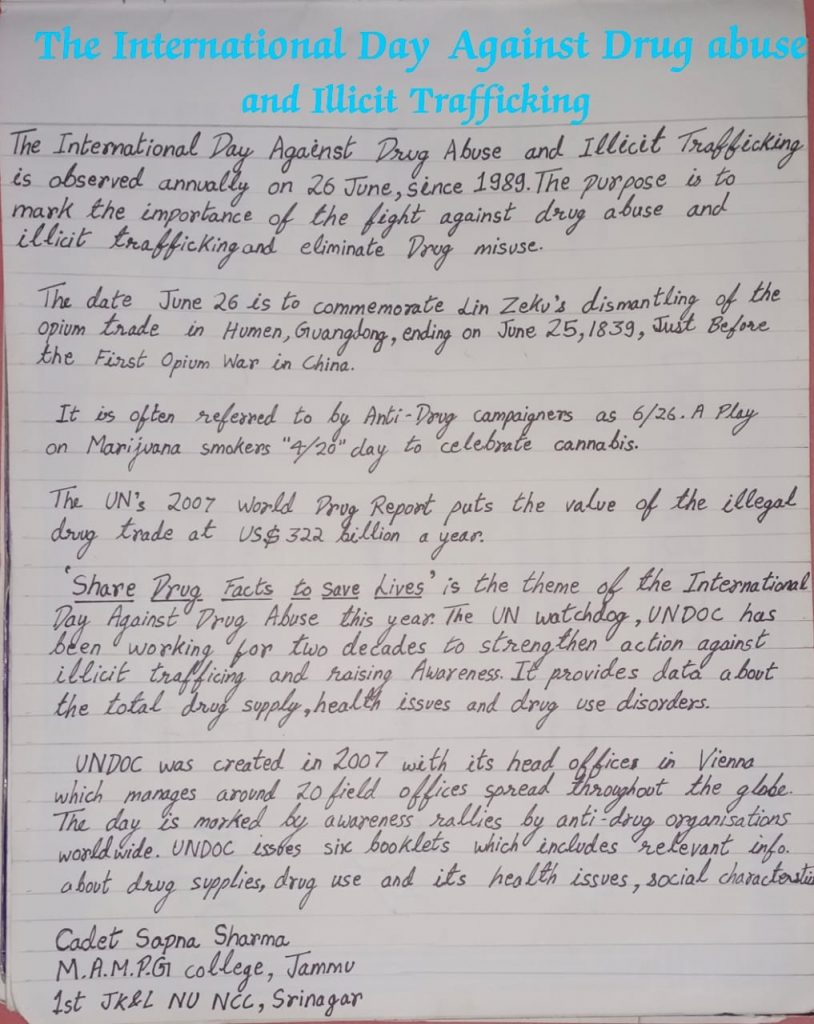 The International Day Against Drug abuse
and Illicit Trafficking
The International Day Against Drug Abuse and Illicit Trafficking
is observed annually on 26 June, since 1989. The purpose is to
mark the importance of the fight against drug abuse and
illicit trafficking and eliminate Drug misuse.
The date June 26 is to commemorate Lin Zeku's dismantling of the
opium trade in Humen, Guangdong, ending on June 25, 1839, Just Before
the First Opium War in China.
It is often referred to by Anti-Drug campaigners as 6/26. A Play
on Marijuana smokers "4/20" day to celebrate cannabis.
The UN's 2007 World Drug Report puts the value of the illegal
drug trade at US$ 322 billion a year.
'Share Drug Facts to save Lives' is the theme of the International
Day Against Drug Abuse this year. The UN watchdog, UNDOC has
been working for two decades to strengthen action against
illicit trafficing and raising Awareness. It provides data about
the total drug supply, health issues and drug use disorders.
UNDOC was created in 2007 with its head offices in Vienna
which manages around 20 field offices spread throughout the globe.
The day is marked by awareness rallies by anti-drug organisations
worldwide. UNDOC issues six booklets which includes relevant info.
about drug supplies, drug use and its health issues, social
Cadet Sapna Sharma
M.A.M.P.G college, Jammu
1st JK&L NU NCC, Srinagar